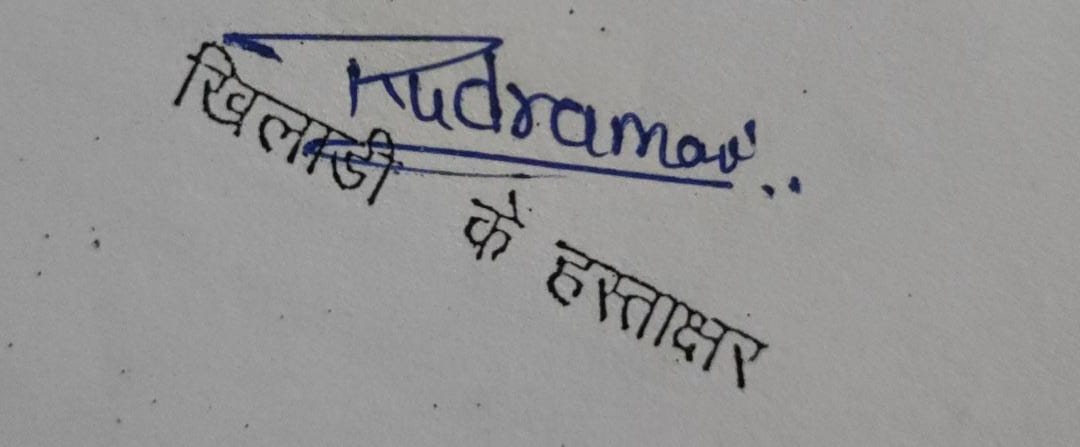 Rudramani..
खिलाड़ी के हस्ताक्षर